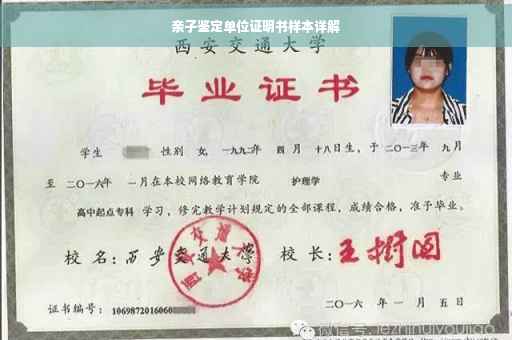 亲子鉴定单位证明书样本详解
西安交通大学
毕业证书
学生 性别 女,一九九二年 四月 十八日生,于 二〇一三年 九月
至 二〇一六年 一月在本校网络教育学院 护理学 专业
高中起点专科 学习,修完教学计划规定的全部课程,成绩合格,准予毕业。
校 名:西安交通大学 校 长:王树国
西安交通大学
证书编号: 1069872016060
二〇一六 年 一 月 五 日
微信号: lezhihuiyoujiao